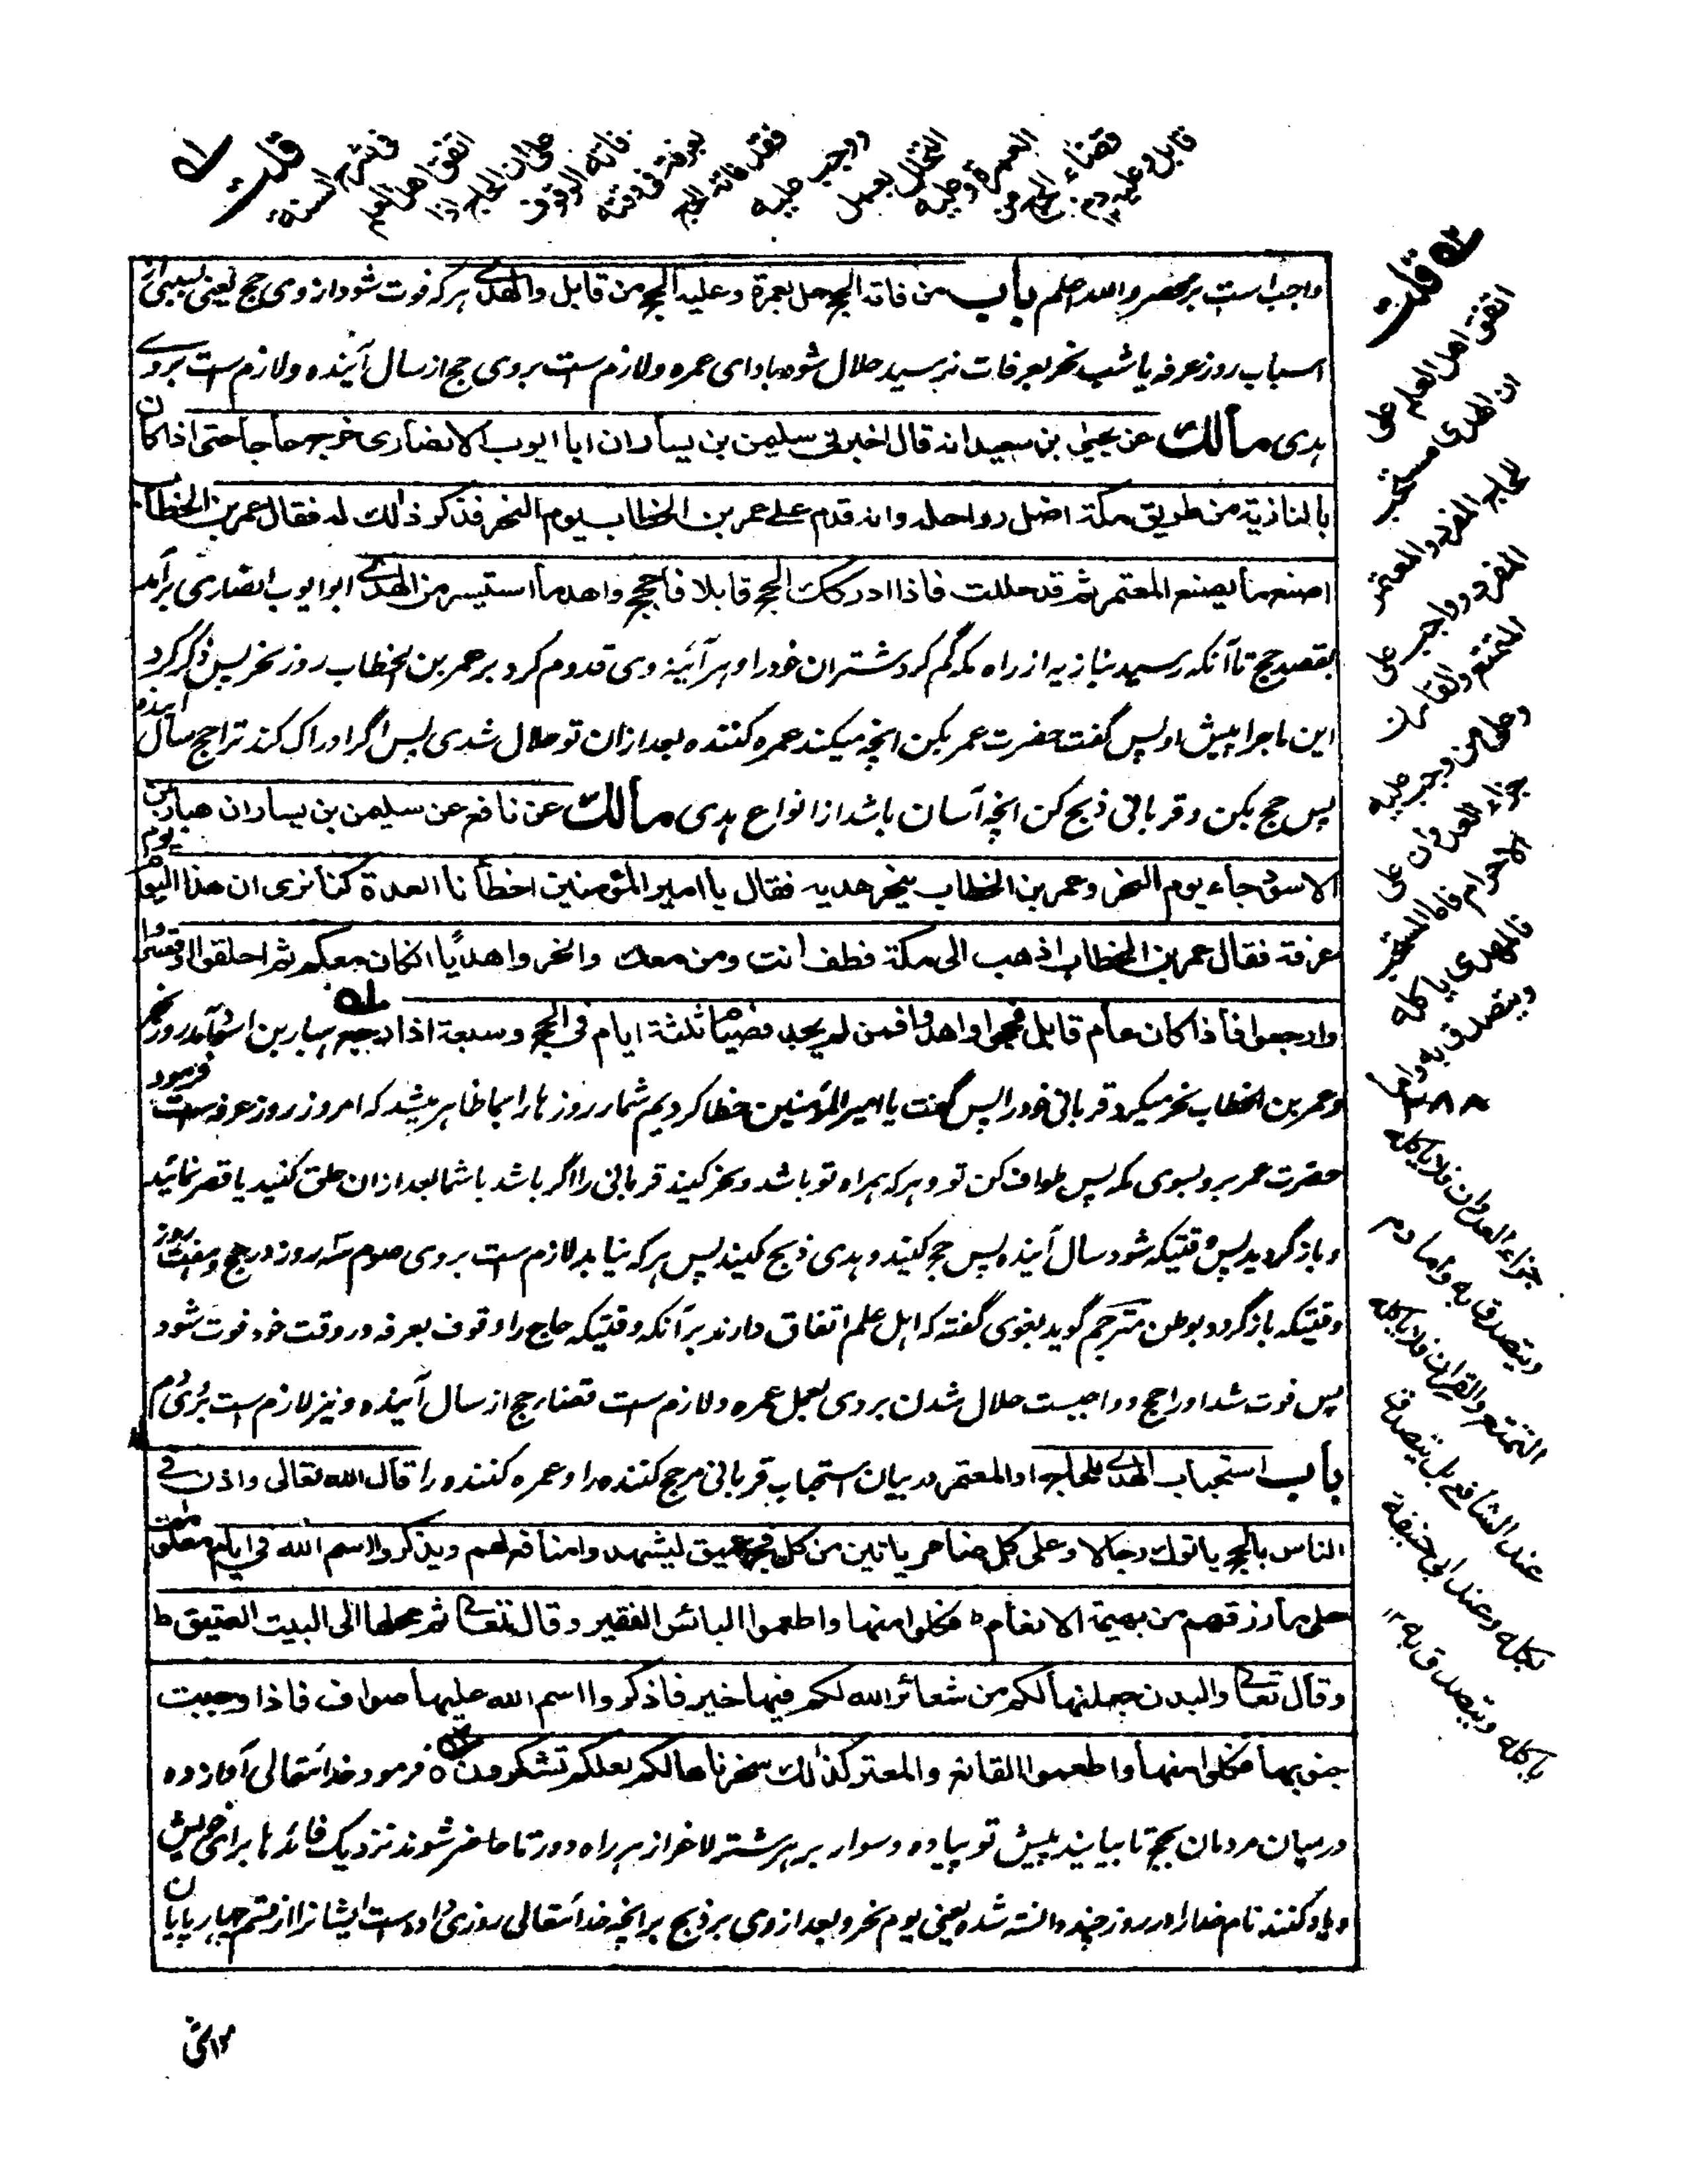 له قلت
فى شرح السنة
اتفق اهل العلم
على ان الحاج اذا
فاته الوقوف
بعرفة فى وقته
فقد فاته الحج
ووجب عليه
التحلل بعمل
العمرة وعليه
قضاء الحج من
قابل وعليه دم ١٢
واجب است بر محصر والله اعلم باب من فاته الحج حل بعمرة وعليه الحج من قابل والهدى هر كه فوت شود از وى حج يعنى بسببى از
اسباب روز عرفه يا شب نحر بعرفات نرسيد حلال شود بادای عمره ولازم ست بروى حج از سال آينده ولازم ست بروے
هدى مالك عن يحيى بن سعيد انه قال اخبرنى سليمن بن يسار ان ابا ايوب الانصارى خرج حاجا حتى اذا كان
بالنازية من طريق مكة اضل رواحله وانه قدم على عمر بن الخطاب يوم النحر فذكر ذلك له فقال عمر بن الخطاب
اصنع ما يصنع المعتمر ثم قد حللت فاذا ادركك الحج قابلا فاحجج واهد ما استيسر من الهدى ابو ايوب انصارى برآمد
بقصد حج تا آنكه رسيد بنازيه از راه مكه گم كرد شتران خود را وهر آئينه وى قدوم كرد بر عمر بن الخطاب روز نحر پس ذكر كرد
اين ماجرا پيش او پس گفت حضرت عمر بكن انچه ميكند عمره كننده بعد ازان تو حلال شدى پس اگر ادراك كند ترا حج سال آينده
پس حج بكن وقربانى ذبح كن انچه آسان باشد از انواع هدى مالك عن نافع عن سليمن بن يسار ان هبار بن
الاسود جاء يوم النحر وعمر بن الخطاب ينحر هديه فقال يا امير المؤمنين اخطأنا العدة كنا نرى ان هذا اليوم يوم
عرفة فقال عمر بن الخطاب اذهب الى مكة فطف انت ومن معك وانحروا هديا ان كان معكم ثم احلقوا او قصروا
وارجعوا فاذا كان عام قابل فحجوا واهدوا فمن لم يجد فصيام ثلثة ايام فى الحج وسبعة اذا رجع له هبار بن اسود آمد روز نحر
وعمر بن الخطاب نحر ميكرد قربانى خود را پس گفت يا امير المؤمنين خطا كرديم شمار روز ها را بما ظاهر ميشد كه امروز روز عرفه ست فرمود
حضرت عمر برو بسوى مكه پس طواف كن تو وهر كه همراه تو باشد ونحر كنيد قربانى را اگر باشد باشما بعد ازان حلق كنيد يا قصر نمائيد
وباز گرديد پس وقتيكه شود سال آينده پس حج كنيد وهدى ذبح كنيد پس هر كه نيابد لازم ست بروى صوم سه روز در حج وهفت روز
وقتيكه باز گردد بوطن مترجم گويد بغوى گفته كه اهل علم اتفاق دارند بر آنكه وقتيكه حاج را وقوف بعرفه در وقت خود فوت شود
پس فوت شد او را حج وواجبست حلال شدن بروى بعمل عمره ولازم ست قضاء حج از سال آينده ونيز لازم ست بروى دم
باب استحباب الهدى للحاج او المعتمر در بيان استحباب قربانى مر حج كننده را وعمره كننده را قال الله تعالى واذن فى
الناس بالحج ياتوك رجالا وعلى كل ضامر ياتين من كل فج عميق ليشهدوا منافع لهم ويذكروا اسم الله فى ايام معلومات
على ما رزقهم من بهيمة الانعام ط فكلوا منها واطعموا البائس الفقير وقال تعالى ثم محلها الى البيت العتيق ط
وقال تعالى والبدن جعلنها لكم من شعائر الله لكم فيها خير فاذكروا اسم الله عليها صواف فاذا وجبت
جنوبها فكلوا منها واطعموا القانع والمعتر كذلك سخرناها لكم لعلكم تشكرون ٥ فرمود خدا تعالى آواز ده
درميان مردمان بحج تا بيايند پيش تو پياده وسوار بر هر شتر لاغر از هر راه دور تا حاضر شوند نزديك فائدها براى خويش
وياد كنند نام خدا را در روز چند دانسته شده يعنى يوم نحر وبعد از وى بر ذبح برانچه خدا تعالى روزى داده ست ايشانرا از قسم چهار پايان
له قلت
اتفق اهل العلم على
ان الهدى مستحب
للحاج المفرد والمعتمر
المفرد وواجب على
المتمتع والقارن
وعلى من وجب عليه
جزاء العدوان على
الاحرام فاما المستحب
فالمهدى ياكله
ويتصدق به واما
جزاء العدوان فلا ياكله
ويتصدق به واما دم
التمتع والقران فلا ياكله
عند الشافعى بل يتصدق
بكله وعند ابى حنيفة
ياكله ويتصدق به ١٢